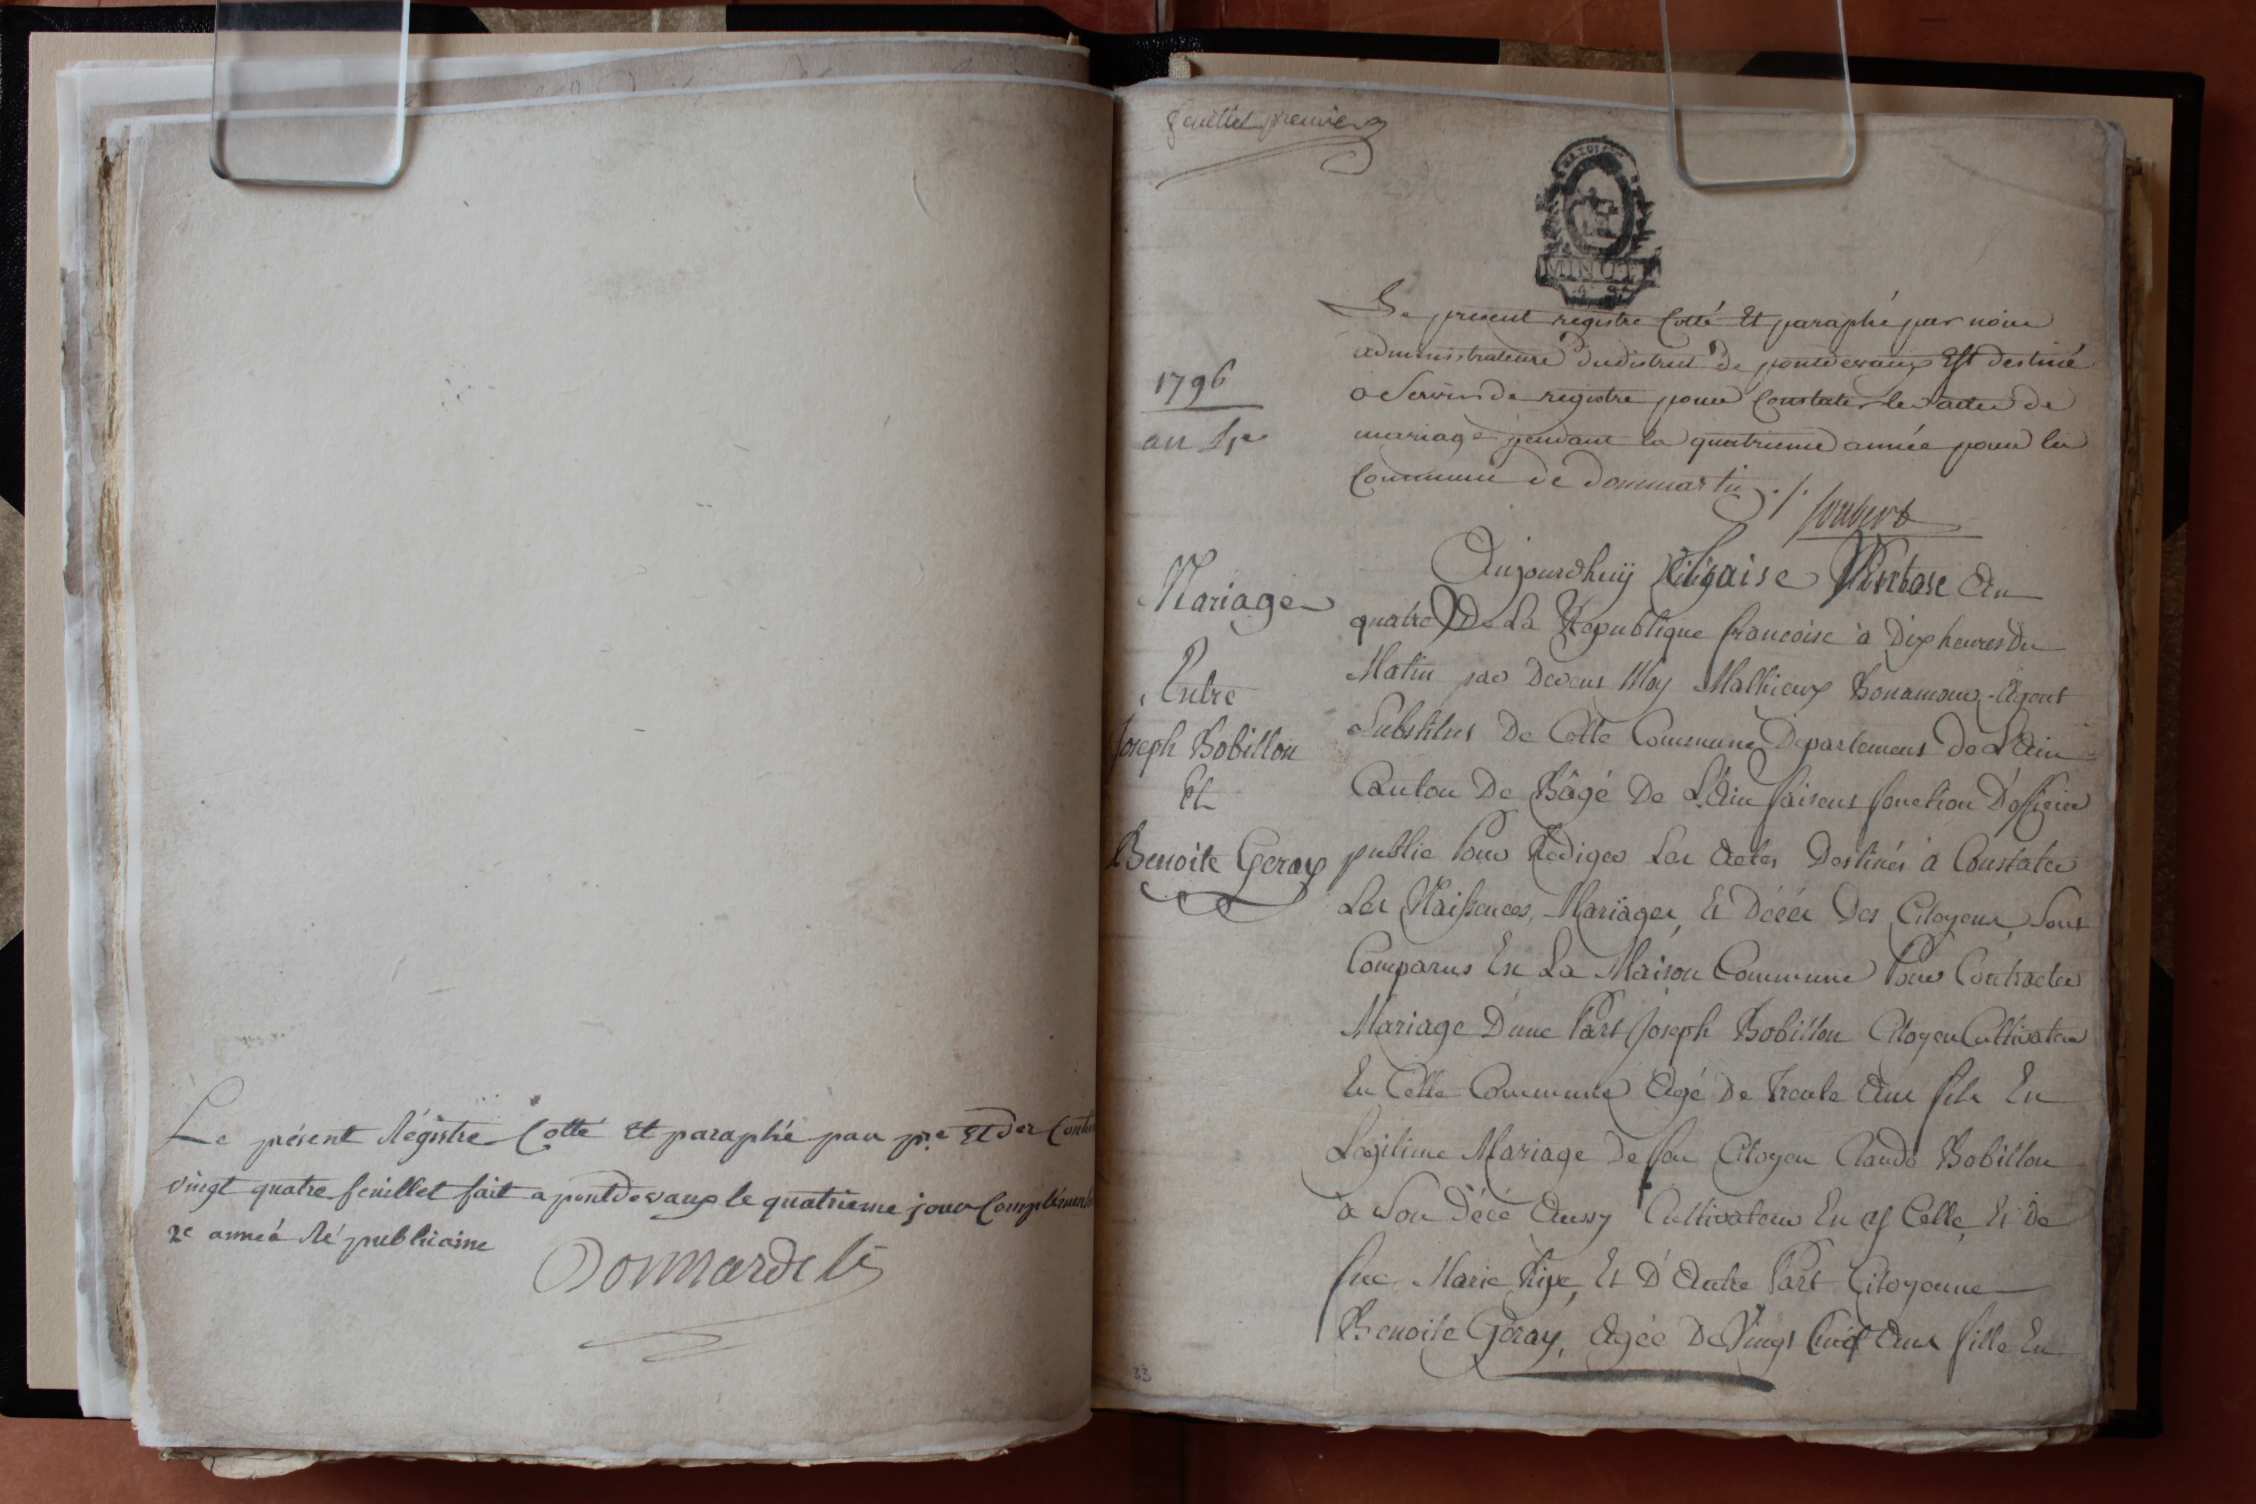 Le présent Régistre Cotté et paraphé par pr.e et der Conten
vingt quatre feuillet fait a pontdevaux le quatrieme jour Complémen
2e année Républicaine
Dommardeli
feuillet premier
MINUTE
Le present registre Cotté Et paraphé par nous
administrateurs du district de pontdevaux Est destiné
a Servir de registre pour Constater les actes de
mariage pendant la quatrieme année pour la
Commune de dommartin ./.
Joubert
1796
an 4e
Mariage
Entre
Joseph Bobillon
Et
Benoite Geray
Aujourdhuÿ Seize Ventose An
quatre De La Republique francoise à Dix heures Du
Matin par Devent Moy Mathieux Bonamour Agent
Substitus De Cette Commune Departement De L'Ain
Canton De Bâgé De L'Ain faisent fonction D'officier
public Pour Rediger Les Actes Destinés à Constater
Les Naissences, Mariages, Et Décés Des Citoyens, Sont
Comparus En La Maison Commune Pour Contracter
Mariage D'une Part Joseph Bobillon Citoyen Cultivateur
En Cette Commune Agé De Trente Ans fils En
Legitime Mariage De feu Citoyen Claude Bobillon
a Son Décé Aussy Cultivateur En Cette, Et De
fue Marie Et D'Autre Part Citoyenne
Benoite Geray, Agée De Vingt Cinq Ans fille En
33